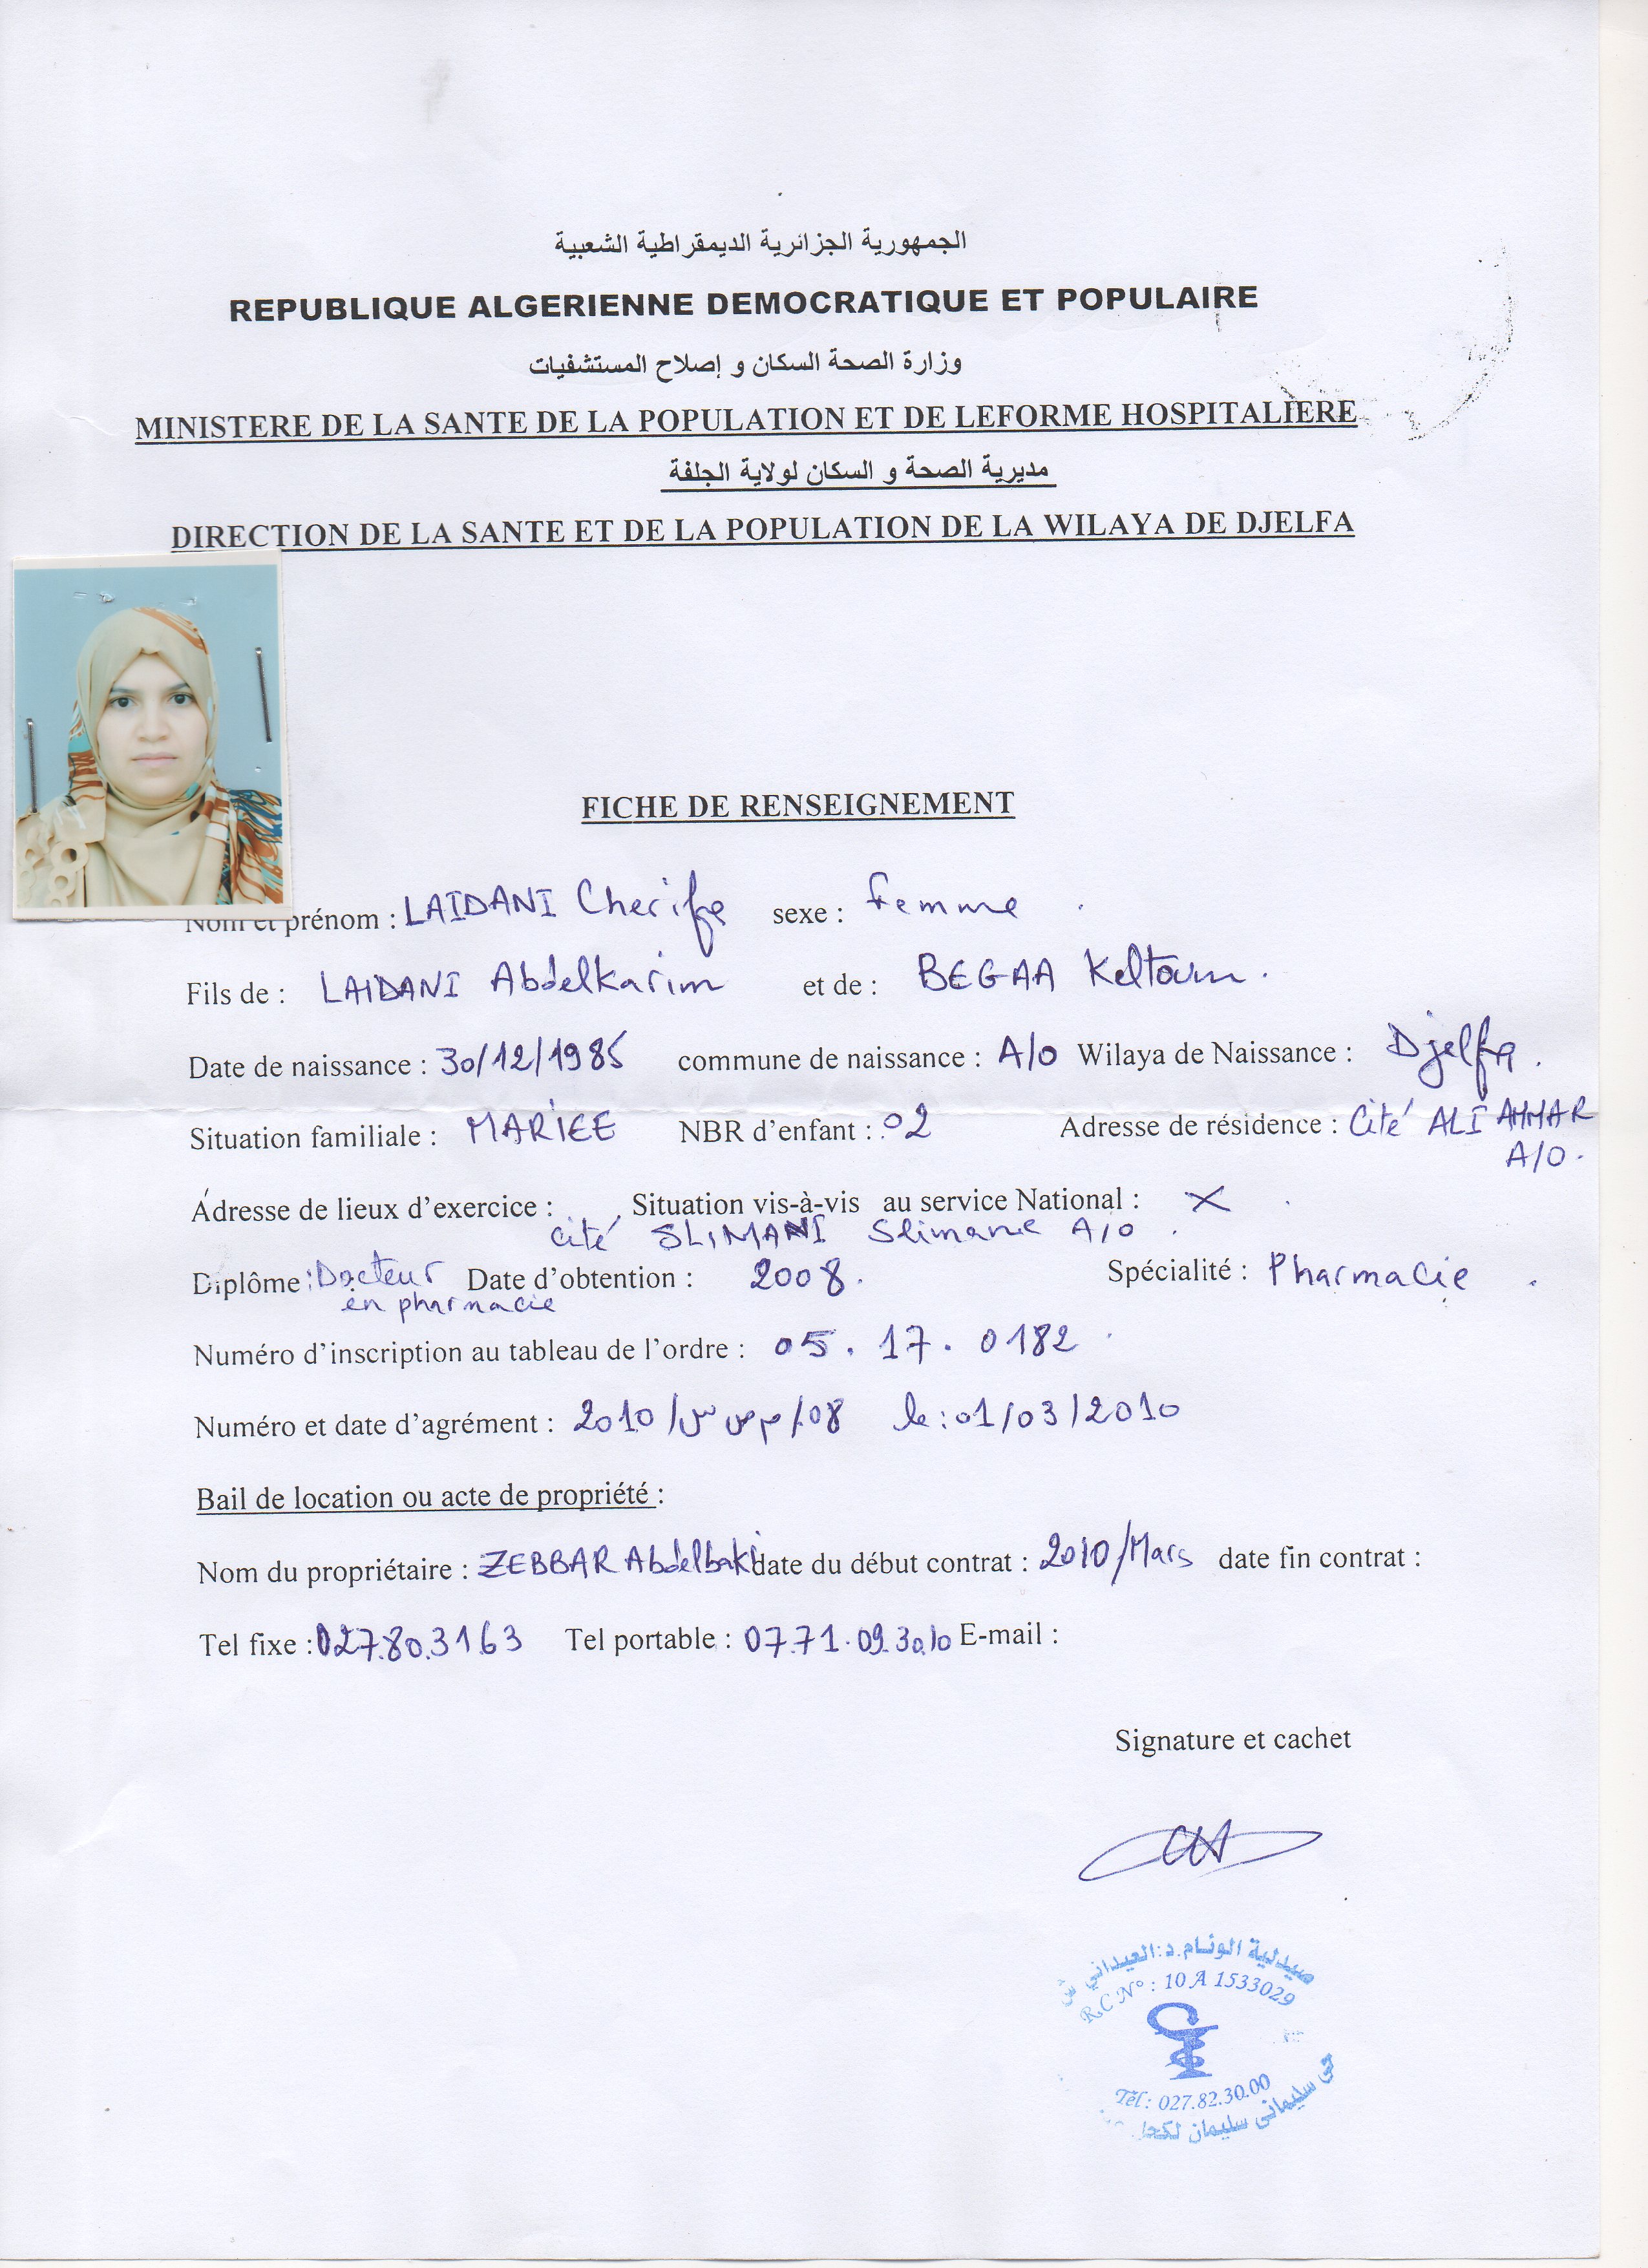 الجمهورية الجزائرية الديمقراطية الشعبية
REPUBLIQUE ALGERIENNE DEMOCRATIQUE ET POPULAIRE
وزارة الصحة السكان و إصلاح المستشفيات
MINISTERE DE LA SANTE DE LA POPULATION ET DE LEFORME HOSPITALIERE
مديرية الصحة و السكان لولاية الجلفة
DIRECTION DE LA SANTE ET DE LA POPULATION DE LA WILAYA DE DJELFA
FICHE DE RENSEIGNEMENT
Nom et prénom : LAIDANI Cherifa sexe : Femme .
Fils de : LAIDANI Abdelkarim et de : BEGAA Keltoum .
Date de naissance : 30/12/1985 commune de naissance : A/O Wilaya de Naissance : Djelfa .
Situation familiale : MARIEE NBR d'enfant : 02 Adresse de résidence : Cité ALI AMMAR
A/O .
Adresse de lieux d'exercice : Situation vis-à-vis au service National : X
cité SLIMANI Slimane A/O .
Diplôme : Docteur Date d'obtention : 2008 . Spécialité : Pharmacie .
en pharmacie
Numéro d'inscription au tableau de l'ordre : 05 . 17 . 0182
Numéro et date d'agrément : 2010/م ص س/08 le : 01/03/2010
Bail de location ou acte de propriété :
Nom du propriétaire : ZEBBAR Abdelbaki date du début contrat : 2010/Mars date fin contrat :
Tel fixe : 027.80.31.63 Tel portable : 07.71.09.30.10 E-mail :
Signature et cachet
صيدلية الونام د: العيداني
R.C N° : 10 A 1533029
Tél : 027.82.30.00
حي سليماني سليمان